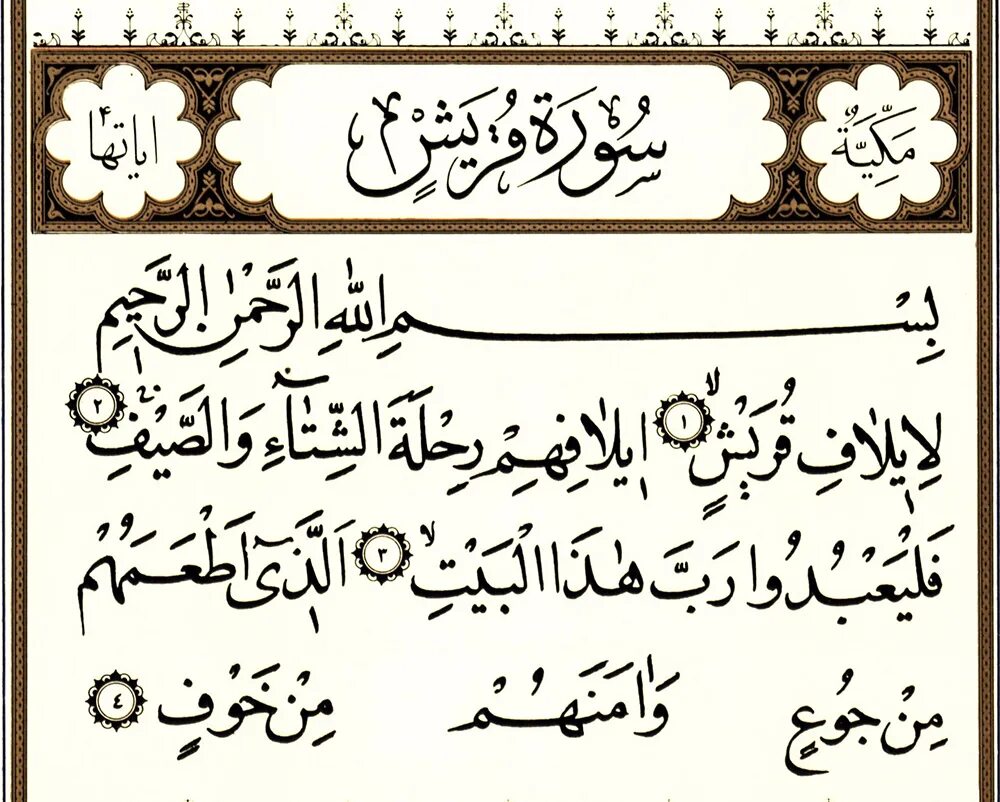 مَكِّيَّةٌ سُورَةُ قُرَيْشٍ اياتها ۴
بِسْمِ اللهِ الرَّحْمٰنِ الرَّحِيمِ
لِاِيلَافِ قُرَيْشٍۙ ١ اِيلَافِهِمْ رِحْلَةَ الشِّتَٓاءِ وَالصَّيْفِۚ ٢
فَلْيَعْبُدُوا رَبَّ هٰذَا الْبَيْتِۙ ٣ اَلَّذ۪ٓى اَطْعَمَهُمْ
مِنْ جُوعٍ وَاٰمَنَهُمْ مِنْ خَوْفٍ ٤